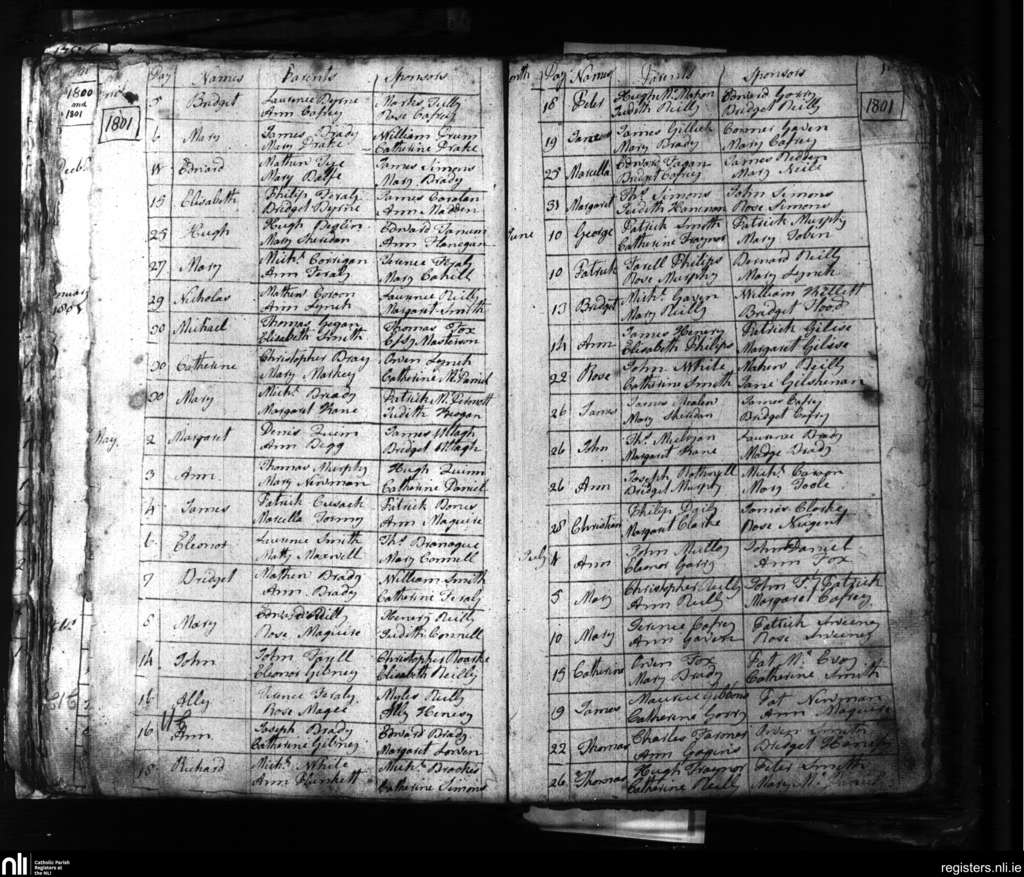 1800
and
1801
1801
Day Names Parents Sponsors
5 Bridget Laurence Byrne Marks Reilly
Ann Cafrey Rose Cafrey
6 Mary James Brady William Drum
Mary Drake Catherine Drake
11 Edward Mathew Tye James Simons
Mary Mary Brady
15 Elisabeth Philip Feraly James Carolan
Bridget Byrne Ann Madden
25 Hugh Hugh Edward
Mary Sheridan Ann Flanegan
27 Mary Michl. Corrigan Terence Feraly
Ann Feraly Mary Cahill
29 Nicholas Mathew Laurence Reilly
Ann Lynch Margaret Smith
30 Michael Thomas Thomas Fox
Elisabeth Smith Masterson
30 Catherine Christopher Bray Owen Lynch
Mary Markey Catherine McDaniel
30 Mary Michl. Brady Patrick
Margaret Kane Judith
May 2 Margaret Denis Quinn James
Ann Bigg Bridget
3 Ann Thomas Murphy Hugh Quinn
Mary Newman Catherine Daniel
4 James Patrick Cusack Patrick
Marcella Ann Maguire
6 Eleonor Laurence Smith Ths. Branague
Matty Maxwell Mary Connell
7 Bridget Mathew Brady William Smith
Ann Brady Catherine Feraly
8 Mary Edward Reilly Henery Reilly
Rose Maguire Judith Connell
14 John John Farell Christopher Roarke
Eleonor Gileney Elisabeth Reilly
16 Ally Terence Feraly Myles Reilly
Rose Magee Ally Henesy
16 Ann Joseph Brady Edward Brady
Catherine Gilney Margaret
18 Richard Michl. White Michl.
Ann Plunkett Catherine Simons
1801
Day Names Parents Sponsors
18 Peter Hugh McMahon Edward Gorry
Judith Reilly Bridget Reilly
19 James James Gillick Connor Gaven
Mary Brady Mary Cafrey
25 Marcella Edward Fagan James
Bridget Cafrey Mary Neile
31 Margaret Ths. Simons John Simons
Judith Rose Simons
June 10 George Patrick Smith Patrick Murphy
Catherine Traynor Mary Tobin
10 Patrick Farell Philips Bernard Reilly
Rose Murphy Mary Lynch
13 Bridget Michl. Gaven William
Mary Reilly Bridget Flood
14 Ann James Henery Patrick Gilise
Elisabeth Philips Margaret Gilise
22 Rose John White Mathew Reilly
Catherine Smith Jane Gilshenan
26 James James James Cafry
Mary Sheridan Bridget Cafry
26 John Ths. Laurence Brady
Margaret Kane Madge Brady
26 Ann Joseph Michl.
Bridget Murphy Mary Toole
28 Christian Philip Daly James Clarke
Margaret Clarke Rose Nugent
July 4 Ann John Mulloy John Daniel
Eleonor Garry Ann Fox
5 Mary Christopher Reilly John Fz Patrick
Ann Reilly Margaret Cafrey
10 Mary Terence Cafrey Patrick Sweeney
Ann Gaven Rose Sweeney
15 Catherine Owen Fox Pat McEvoy
Mary Brady Catherine Smith
19 James Maurice Gibbons Pat Newman
Catherine Gorry Ann Maguire
22 Thomas Charles Owen Smith
Ann Bridget
26 Thomas Hugh Traynor Peter Smith
Catherine Reilly Mary
nli
Catholic Parish
Registers at
the NLI
registers.nli.ie